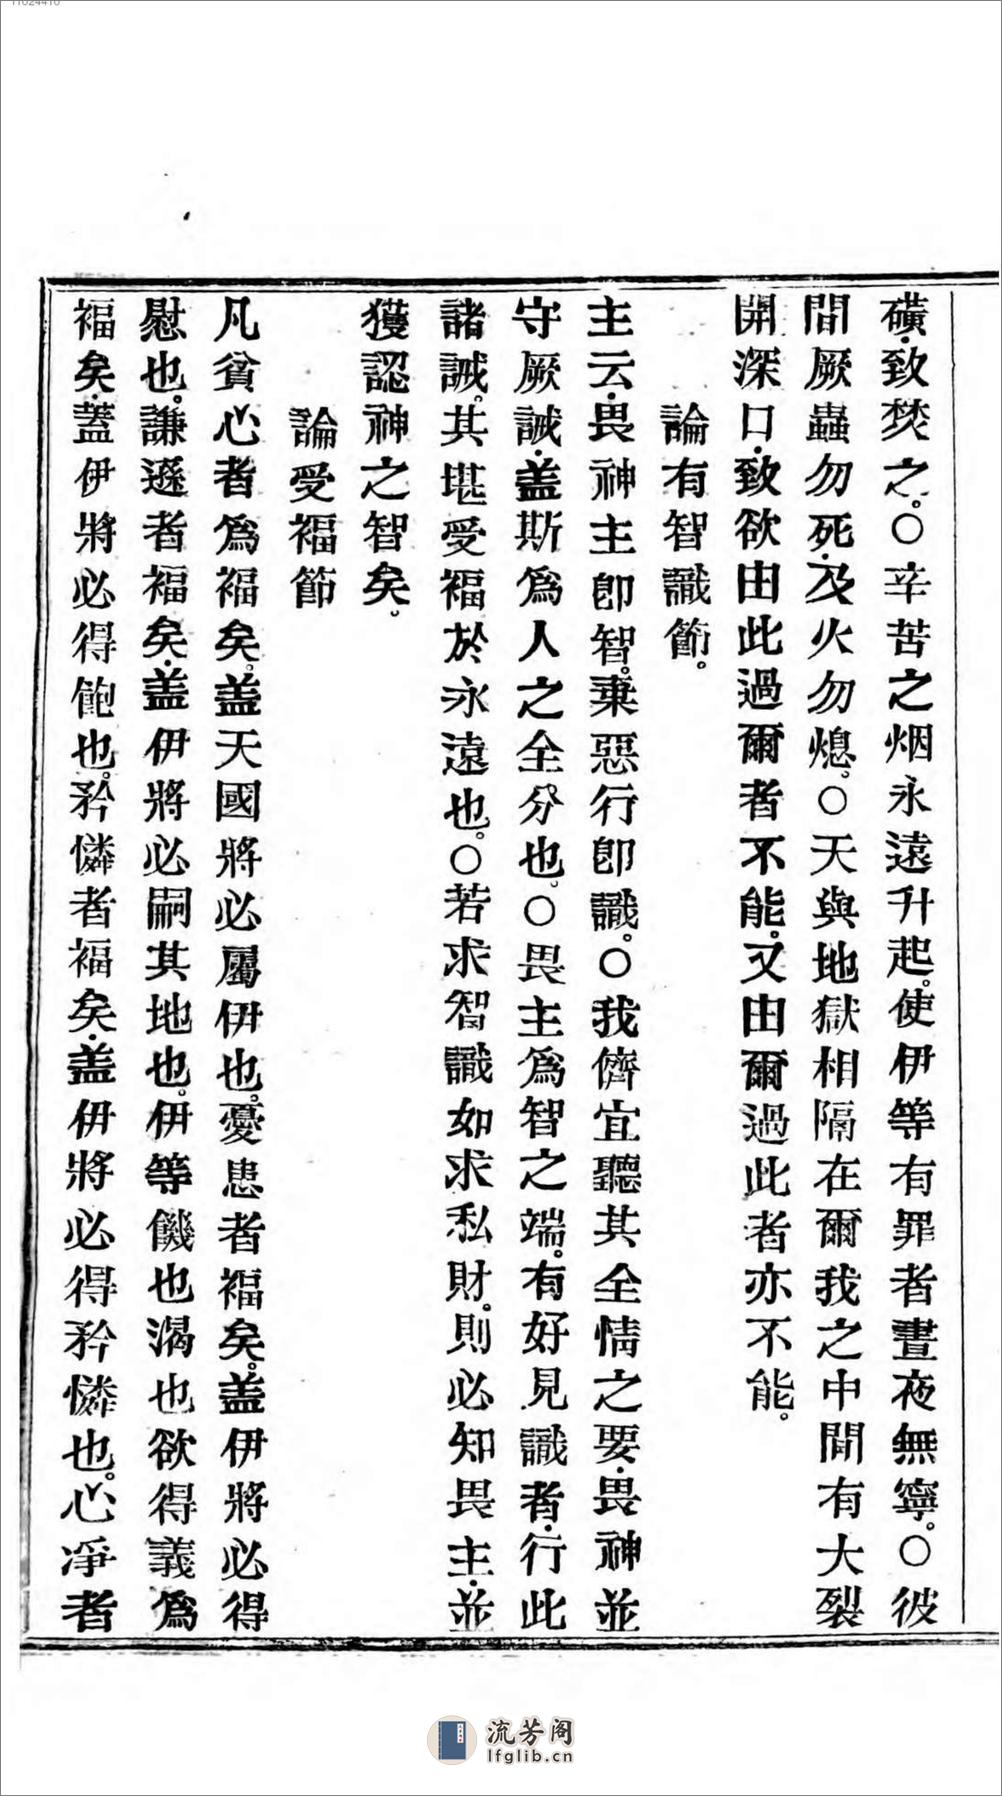 磺，致焚之。○辛苦之烟永遠升起。使伊等有罪者晝夜無寧。○彼
間厥蟲勿死，及火勿熄。○天與地獄相隔在爾我之中間有大裂
開深口，致欲由此過爾者不能。又由爾過此者亦不能。
論有智識節。
主云，畏神主卽智。棄惡行卽識。○我儕宜聽其全情之要，畏神並
守厥誡，盖斯為人之全分也。○畏主為智之端。有好見識者，行此
諸誡。其堪受福於永遠也。○若求智識如求私財。則必知畏主，並
獲認神之智矣。
論受福節
凡貧心者為福矣。盖天國將必屬伊也。憂患者福矣。盖伊將必得
慰也。謙遜者福矣，盖伊將必嗣其地也。伊等饑也渴也欲得義為
福矣，蓋伊將必得飽也。矜憐者福矣，盖伊將必得矜憐也。心凈者
流芳阁
lfglib.cn